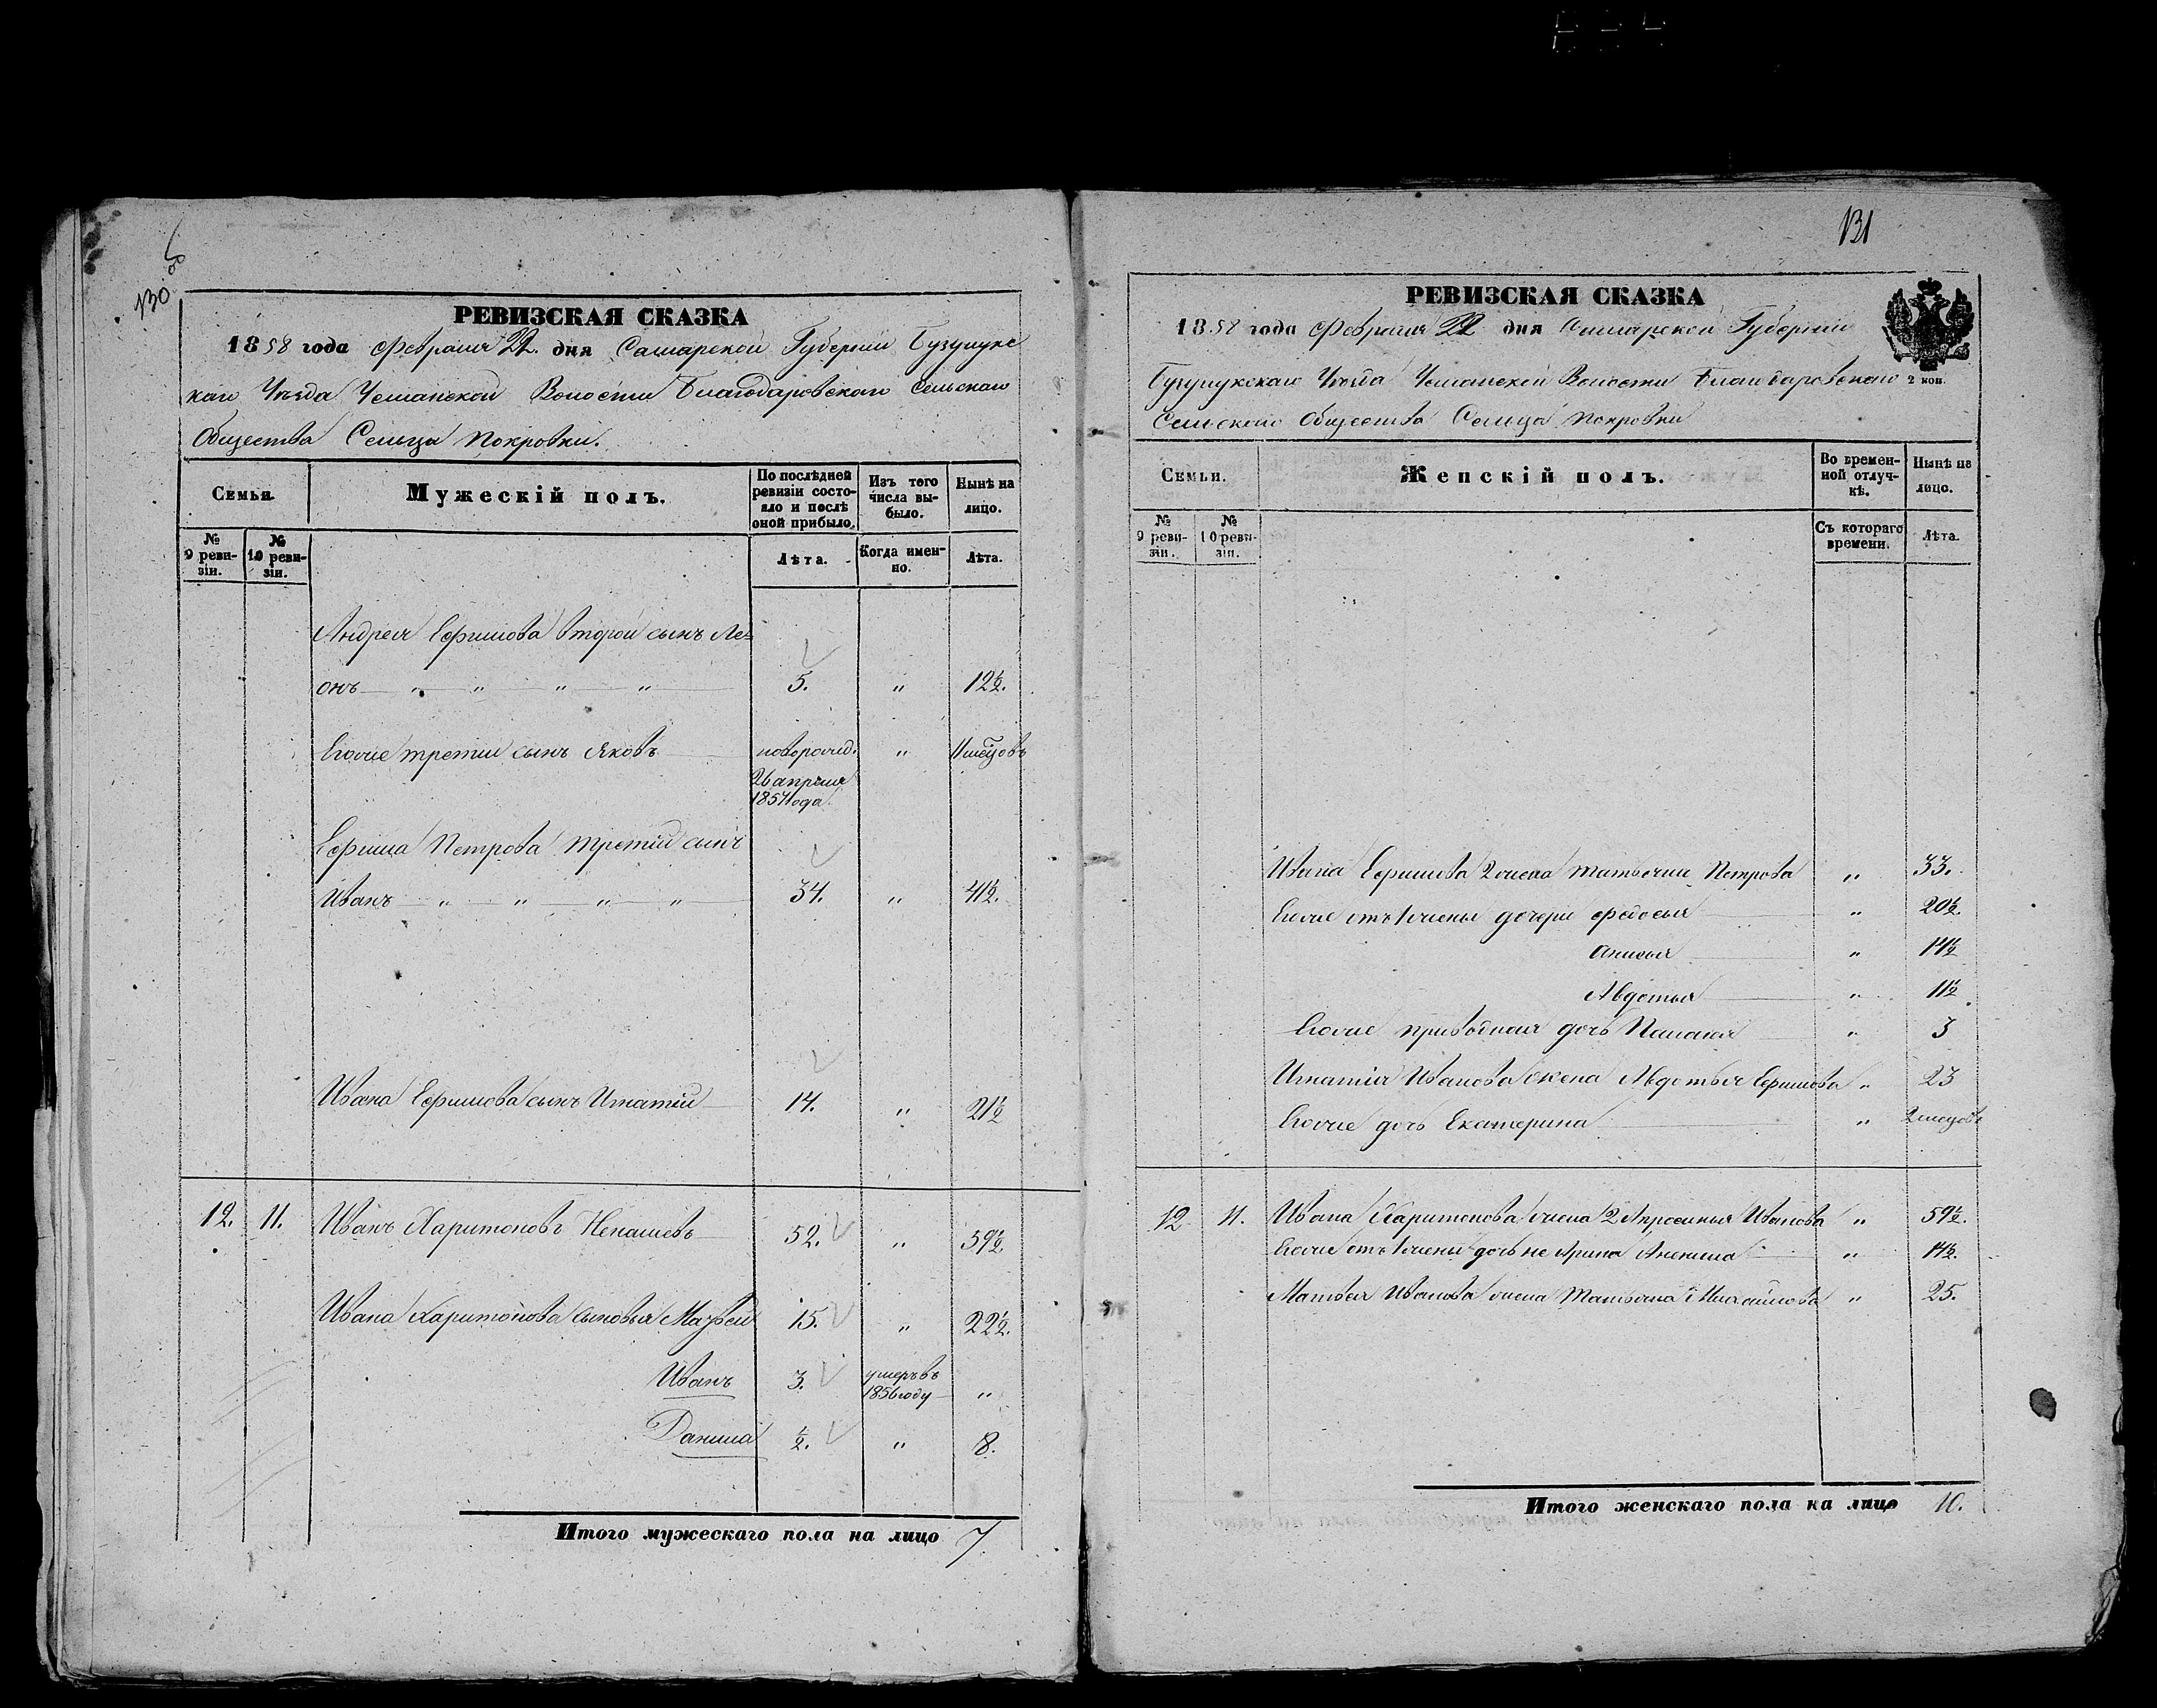 130 об
РЕВИЗСКАЯ СКАЗКА
1858 года Февраля 22. дня Самарской Губерніи Бузулукс
каго Уѣзда Чесманской Волости Благодаровскаго Сельскаго
Общества Сельца Покровки.
Семьи.
Мужескій полъ.
По послѣдней ревизіи состояло и послѣ оной прибыло.
Изъ того числа выбыло.
Нынѣ на лицо.
№ 9 ревизіи.
№ 10 ревизіи.
Лѣта.
Когда именно.
Лѣта.
Андрея Ефимова второй сынъ Ле=
онъ — „ — „ — „ — „ 5. „ 12½.
Егоже третій сынъ Яковъ новорожд. „ 11 мѣсцовъ
26 апрѣля
1857 года.
Ефима Петрова третій сынъ
Иванъ — „ — „ — „ — „ 34. „ 41½.
Ивана Ефимова сынъ Игнатій 14. „ 21½
12. 11. Иванъ Харитоновъ Ненашевъ 52. „ 59½
Ивана Харитонова сыновья Матвей 15. „ 22½.
Иванъ 3. умеръ въ
1856 году „
Данила ½. „ 8.
Итого мужескаго пола на лицо 7.
131
РЕВИЗСКАЯ СКАЗКА
1858 года Февраля 22 дня Самарской Губерніи
Бузулукскаго Уѣзда Чесманской Волости Благодаровскаго
2 коп.
Сельскаго Общества Сельца Покровки
Семьи.
Женскій полъ.
Во временной отлучкѣ.
Нынѣ на лицо.
№ 9 ревизіи.
№ 10 ревизіи.
Съ котораго времени.
Лѣта.
Ивана Ефимова 2 жена Татьяна Петрова „ 33.
Егоже отъ 1 жены дочери Федосья „ 20½.
Анисья „ 14½
Авдотья „ 11½
Егоже приводная дочь Палагея „ 3
Игнатія Иванова жена Авдотья Ефимова „ 23
Егоже дочь Екатерина „ 2 мѣсцовъ
12 11. Ивана Харитонова жена 2 Апросинья Иванова „ 59½.
Егоже отъ 1 жены дочь не Арина „ 14½.
Матвея Иванова жена Татьяна Михайлова „ 25.
Итого женскаго пола на лицо 10.